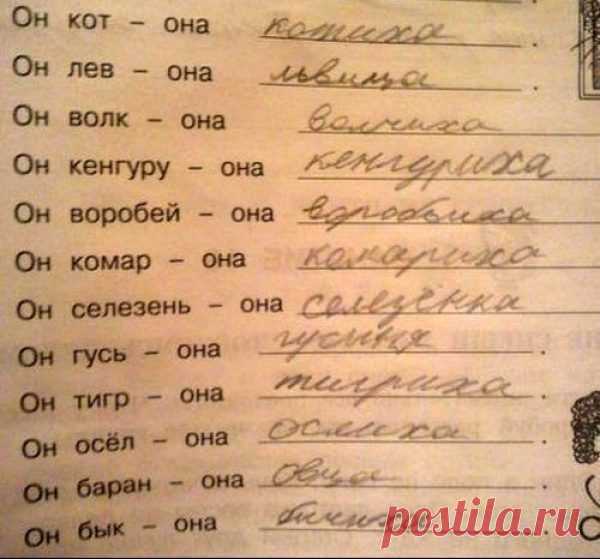 Он кот – она котиха.
Он лев – она львица.
Он волк – она волчиха
Он кенгуру – она кенгуриха
Он воробей – она воробьиха
Он комар – она комариха
Он селезень – она селезёнка
Он гусь – она гусыня.
Он тигр – она тигриха.
Он осёл – она ослиха.
Он баран – она овца.
Он бык – она бычиха
postila.ru